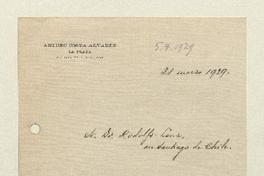 ARTURO COSTA ALVAREZ
LA PLATA
5.4.1929
21 marzo 1929.
A. Dr. Rodolfo Lenz,
en Santiago de Chile.